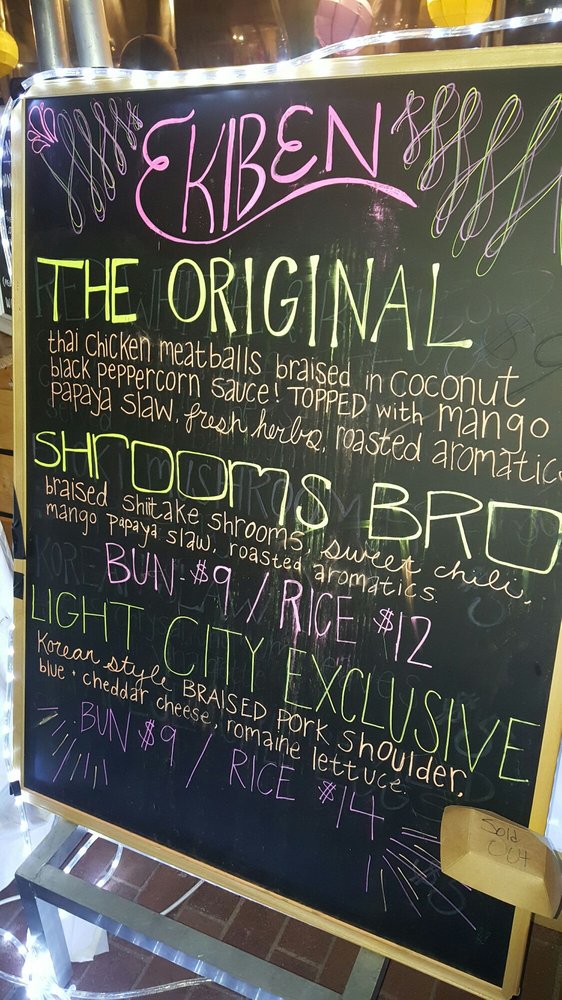 EKIBEN
THE ORIGINAL
thai chicken meatballs braised in coconut
black peppercorn sauce! TOPPED with mango
papaya slaw, fresh herbs, roasted aromatics
SHROOMS BRO
braised shiitake shrooms, sweet chili,
mango papaya slaw, roasted aromatics.
BUN - $9 / RICE $12
LIGHT CITY EXCLUSIVE
Korean style BRAISED PORK shoulder,
blue + cheddar cheese, romaine lettuce.
BUN $9 / RICE $14
Sold
OUT